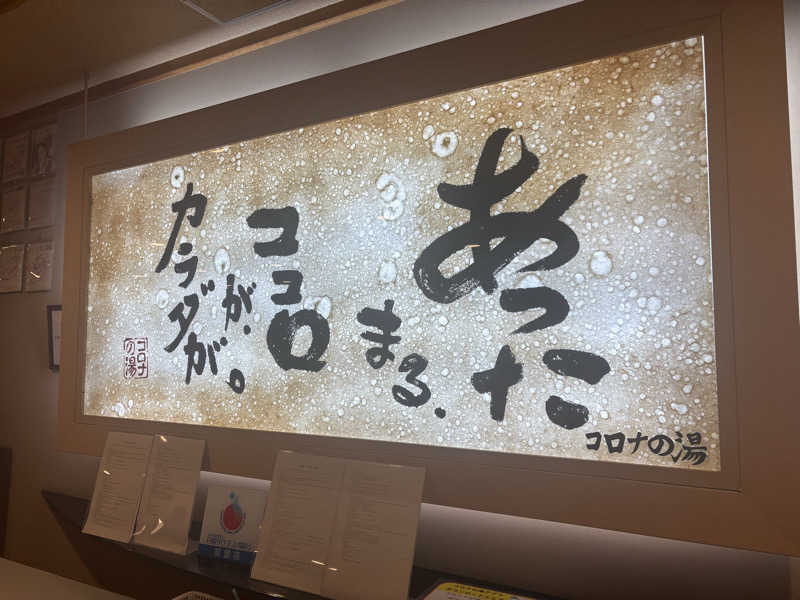 あった
まる、
ココロ
が、
カラダが。
コロナの湯
コロナ
の湯